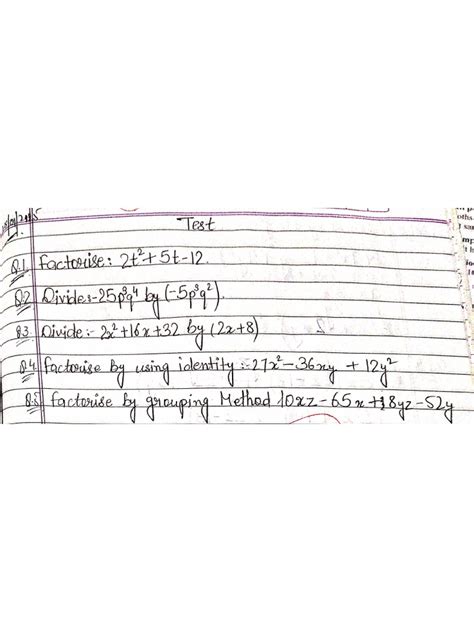 Test
Q.1. Factorise: 2t²+5t-12.
Q.2 Divide:-25p³q⁴ by (-5p³q²).
Q.3. Divide:- 2x²+16x+32 by (2x+8)
Q.4 factorise by using identity:-27x²-36xy + 12y²
Q.5 factorise by grouping Method 10xz-65x+8yz-52y